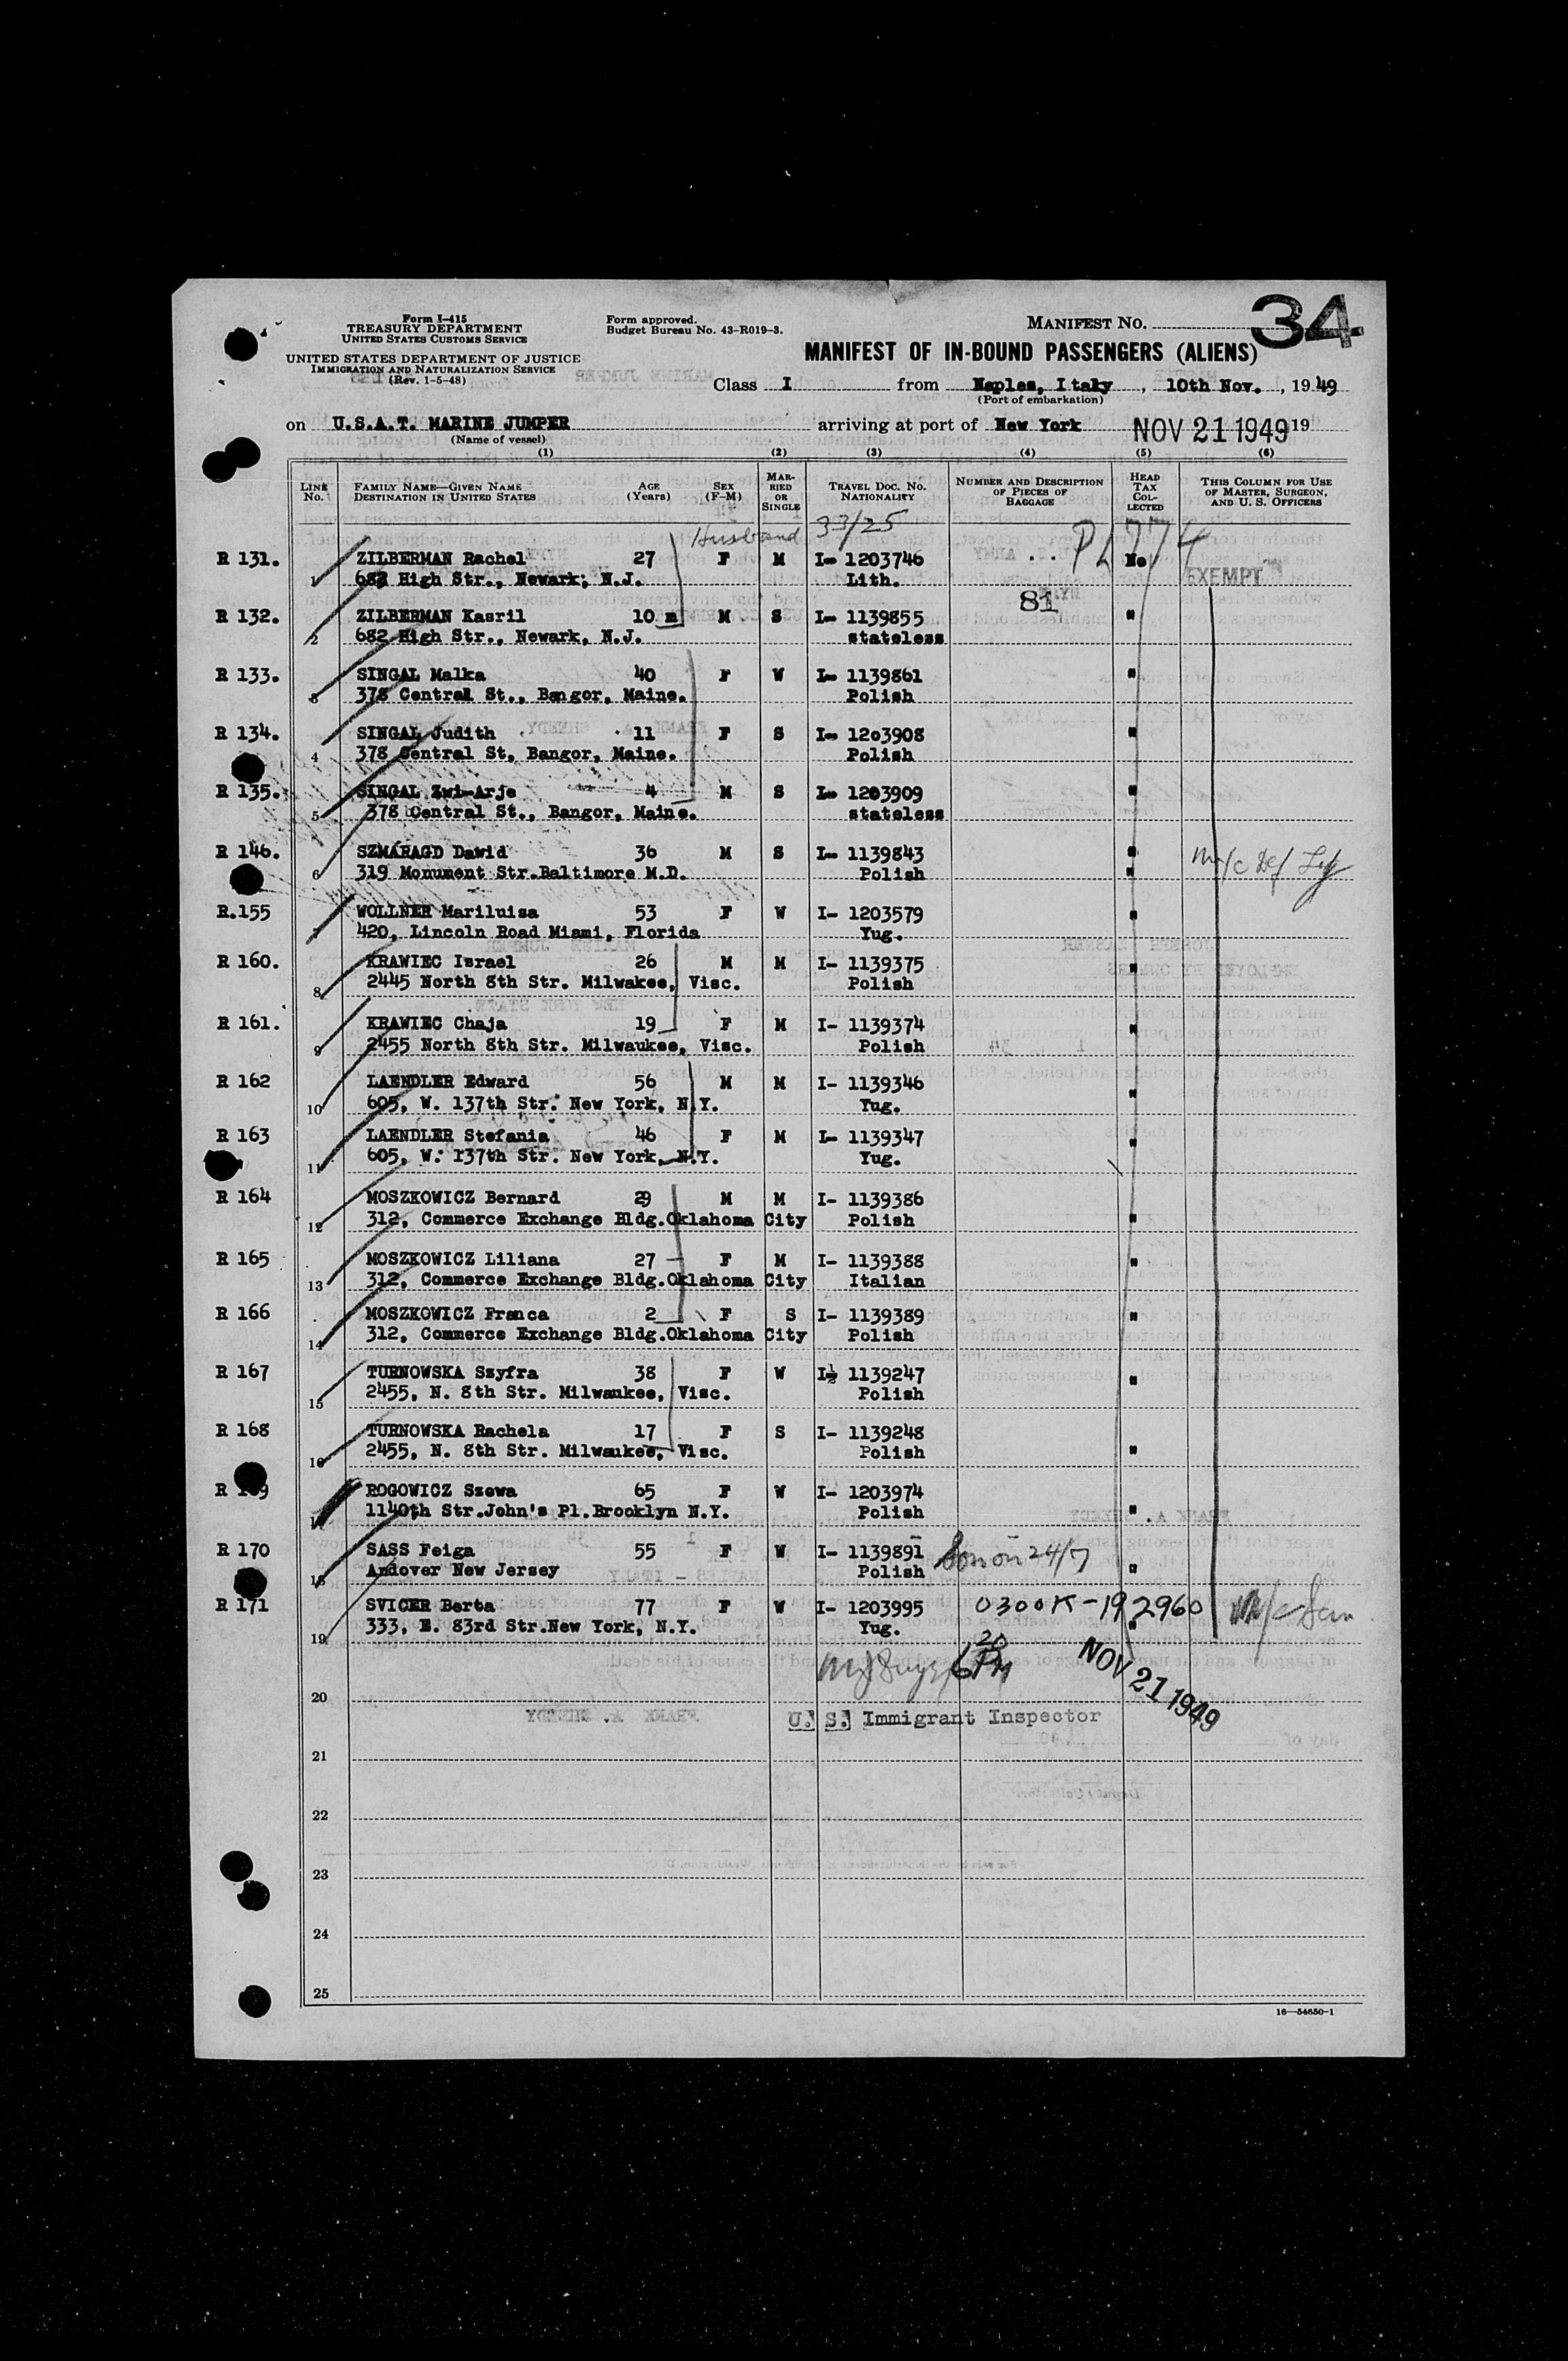 34
Form I-415
TREASURY DEPARTMENT
UNITED STATES CUSTOMS SERVICE
UNITED STATES DEPARTMENT OF JUSTICE
IMMIGRATION AND NATURALIZATION SERVICE
(Rev. 1-5-48)
Form approved.
Budget Bureau No. 43-R019-3.
MANIFEST NO.
MANIFEST OF IN-BOUND PASSENGERS (ALIENS)
Class I from Naples, Italy, 10th Nov., 1949
(Port of embarkation)
on U.S.A.T. MARINE JUMPER arriving at port of New York NOV 21 1949 19
(Name of vessel)
(1) (2) (3) (4) (5) (6)
LINE NO. FAMILY NAME—GIVEN NAME DESTINATION IN UNITED STATES AGE (Years) SEX (F-M) MARRIED OR SINGLE TRAVEL DOC. NO. NATIONALITY NUMBER AND DESCRIPTION OF PIECES OF BAGGAGE HEAD TAX COLLECTED THIS COLUMN FOR USE OF MASTER, SURGEON, AND U. S. OFFICERS
Husband 33/25
R 131. 1 ZILBERMAN Rachel 27 F M I- 1203746 No
682 High Str., Newark, N.J. Lith. EXEMPT
81
R 132. 2 ZILBERMAN Kasril 10 m M S I- 1139855 "
682 High Str., Newark, N.J. stateless
R 133. 3 SINGAL Malka 40 F W I- 1139861 "
378 Central St., Bangor, Maine. Polish
R 134. 4 SINGAL Judith 11 F S I- 1203908 "
378 Central St, Bangor, Maine. Polish
R 135. 5 SINGAL Zwi-Arje 4 M S I- 1203909 "
378 Central St., Bangor, Maine. stateless
R 146. 6 SZMARAGD Dawid 36 M S I- 1139843 "
319 Monument Str.Baltimore M.D. Polish "
R.155 7 WOLLNER Mariluisa 53 F W I- 1203579 "
420, Lincoln Road Miami, Florida Yug.
R 160. 8 KRAWIEC Israel 26 M M I- 1139375 "
2445 North 8th Str. Milwakee, Visc. Polish
R 161. 9 KRAWIEC Chaja 19 F M I- 1139374 "
2455 North 8th Str. Milwaukee, Visc. Polish
R 162 10 LAENDLER Edward 56 M M I- 1139346 "
605, W. 137th Str. New York, N.Y. Yug.
R 163 11 LAENDLER Stefania 46 F M I- 1139347 "
605, W. 137th Str. New York, N.Y. Yug.
R 164 12 MOSZKOWICZ Bernard 29 M M I- 1139386
312, Commerce Exchange Bldg.Oklahoma City Polish "
R 165 13 MOSZKOWICZ Liliana 27 F M I- 1139388 "
312, Commerce Exchange Bldg.Oklahoma City Italian
R 166 14 MOSZKOWICZ Franca 2 F S I- 1139389 "
312, Commerce Exchange Bldg.Oklahoma City Polish
R 167 15 TURNOWSKA Szyfra 38 F W I- 1139247 "
2455, N. 8th Str. Milwaukee, Visc. Polish
R 168 16 TURNOWSKA Rachela 17 F S I- 1139248
2455, N. 8th Str. Milwaukee, Visc. Polish "
R 169 ROGOWICZ Szewa 65 F W I- 1203974
1140th Str.John's Pl.Brooklyn N.Y. Polish "
R 170 18 SASS Feiga 55 F W I- 1139891
Andover New Jersey Polish "
R 171 19 SVICER Berta 77 F W I- 1203995 0300K-192960
333, E. 83rd Str.New York, N.Y. Yug. "
NOV 21 1949
20
U. S. Immigrant Inspector
21
22
23
24
25
16—54650-1